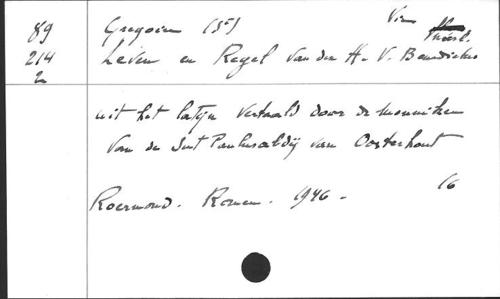 89 Gregoire (St) Vie
214 Leven en Regel van den H. V. Benedictus
2
uit het latijn vertaald door de monniken
van de Sint Paulusabdij van Oosterhout
Roermond. Romen. 1946 - 16